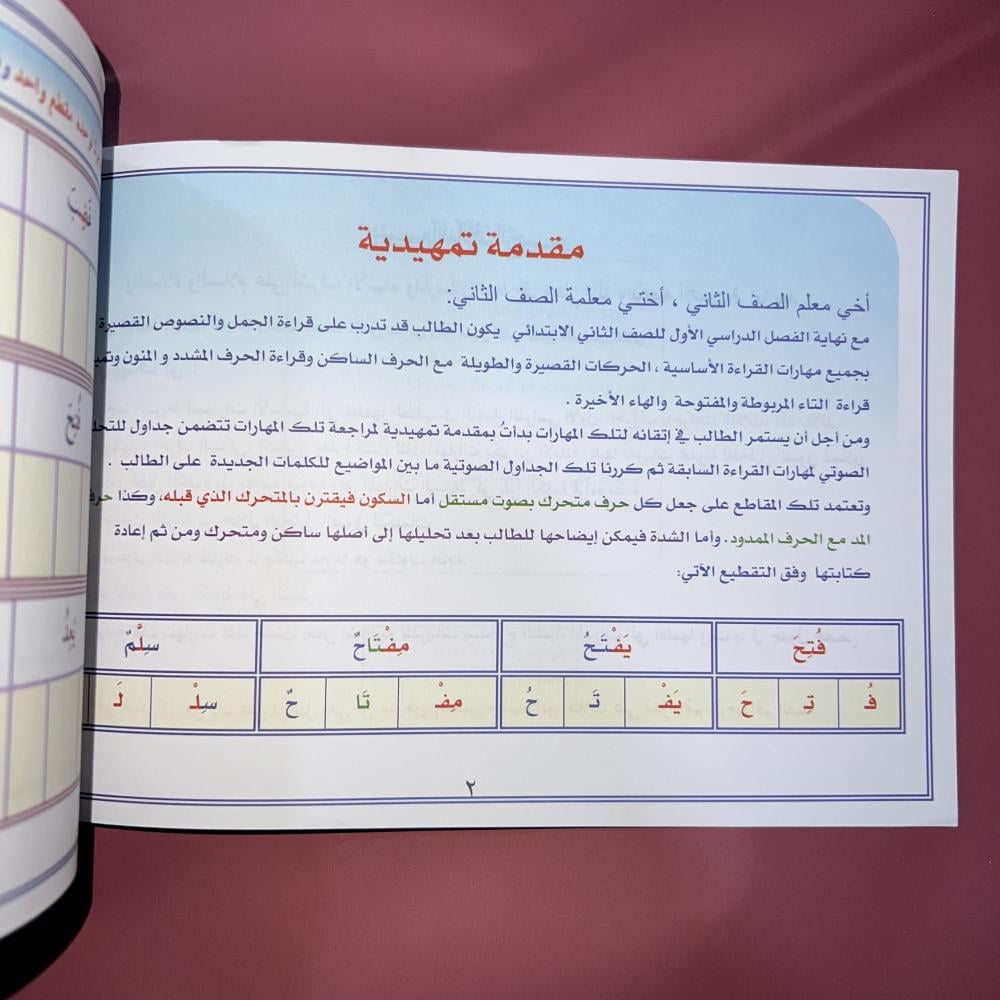 مقدمة تمهيدية
أخي معلم الصف الثاني ، أختي معلمة الصف الثاني:
مع نهاية الفصل الدراسي الأول للصف الثاني الابتدائي يكون الطالب قد تدرب على قراءة الجمل والنصوص القصيرة
بجميع مهارات القراءة الأساسية ، الحركات القصيرة والطويلة مع الحرف الساكن وقراءة الحرف المشدد و المنون
قراءة التاء المربوطة والمفتوحة والهاء الأخيرة .
ومن أجل أن يستمر الطالب في إتقانه لتلك المهارات بدأتُ بمقدمة تمهيدية لمراجعة تلك المهارات تتضمن جداول
الصوتي لمهارات القراءة السابقة ثم كررنا تلك الجداول الصوتية ما بين المواضيع للكلمات الجديدة على الطالب .
وتعتمد تلك المقاطع على جعل كل حرف متحرك بصوت مستقل أما السكون فيقترن بالمتحرك الذي قبله، وكذا
المد مع الحرف الممدود . وأما الشدة فيمكن إيضاحها للطالب بعد تحليلها إلى أصلها ساكن ومتحرك ومن ثم إعادة
كتابتها وفق التقطيع الآتي:
فُتِحَ يَفْتَحُ مِفْتَاحٌ سِلَّمٌ
فُ تِـ حَ يَفْـ تَـ حُ مِفْـ تَا حٌ سِلْـ لَـ
٢
مقطع واحد